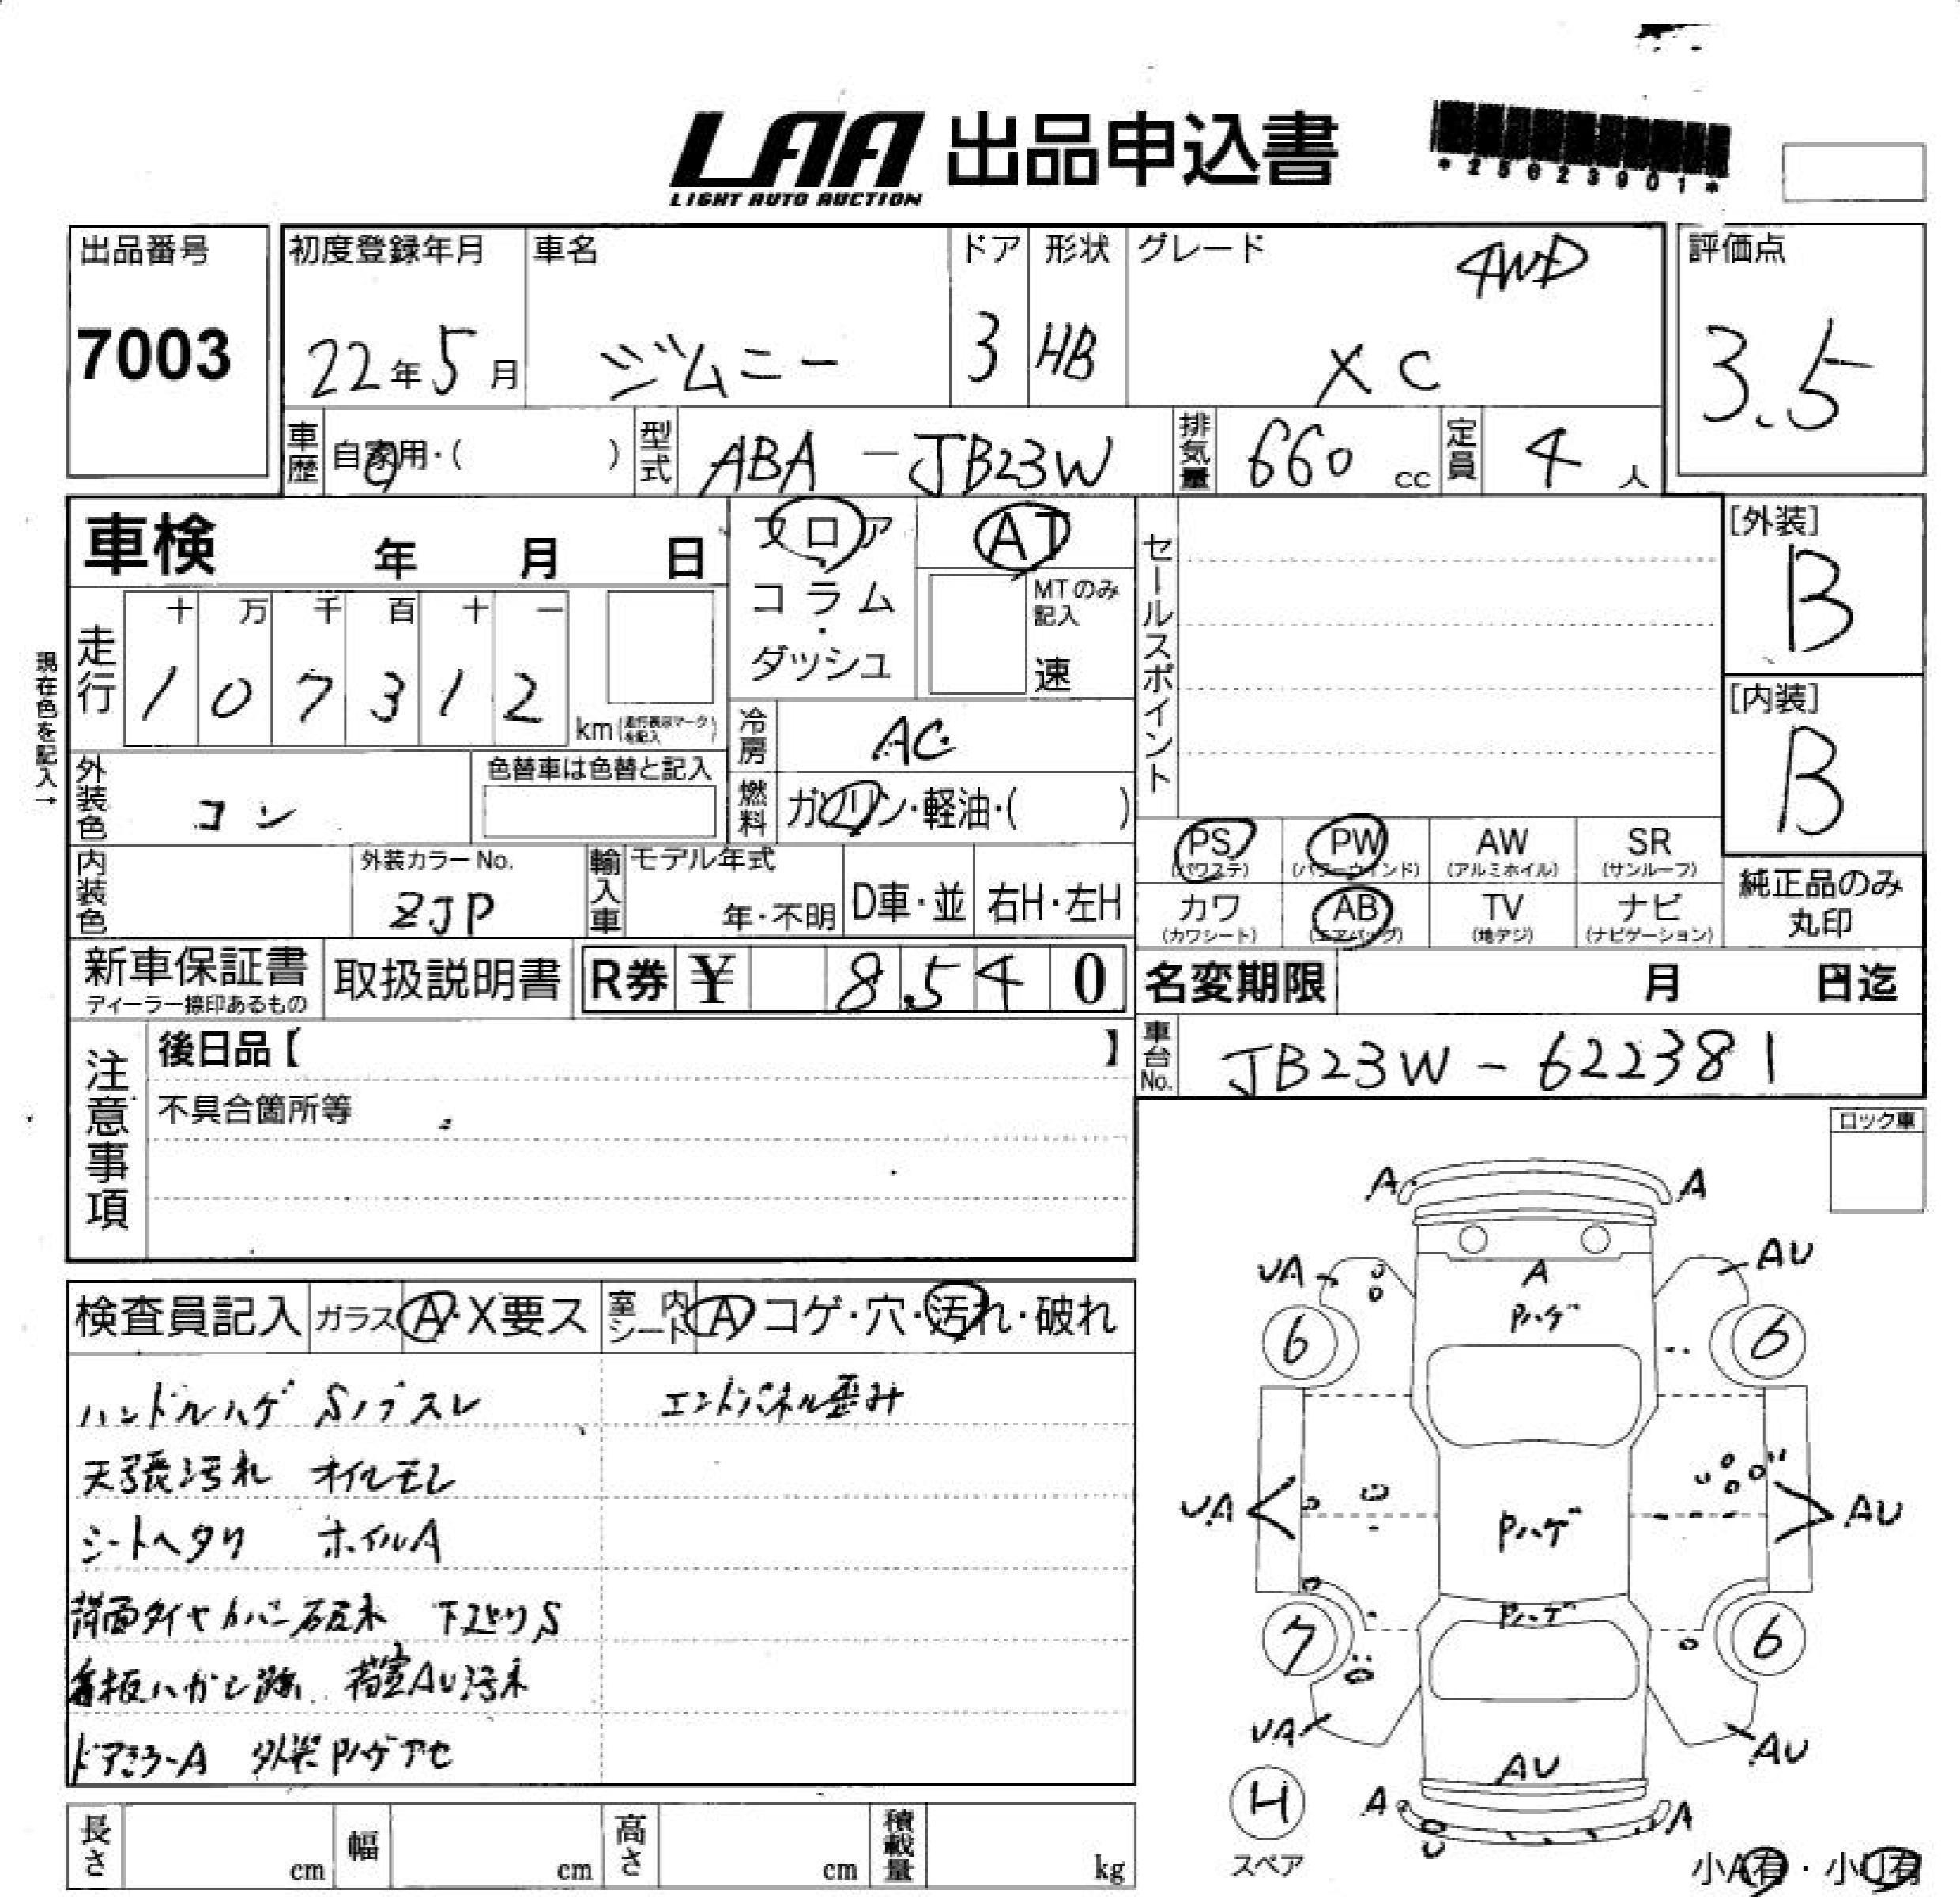 LAA 出品申込書
LIGHT AUTO AUCTION
*25623901*
出品番号
7003
初度登録年月
22年5月
車名
ジムニー
ドア
3
形状
HB
グレード
4WD
XC
評価点
3.5
車歴
自家用・( )
型式
ABA-JB23W
排気量
660 cc
定員
4 人
車検 年 月 日
フロア
コラム
・
ダッシュ
AT
MTのみ
記入
速
セールスポイント
[外装]
B
[内装]
B
現在色を記入→
走行
十 万 千 百 十 一
1 0 7 3 1 2
km(走行表示マークを記入)
冷房
AC
燃料
ガソリン・軽油・( )
外装色
コン
色替車は色替と記入
内装色
外装カラーNo.
ZJP
輸入車
モデル年式
年・不明
D車・並
右H・左H
PS
(パワステ)
PW
(パワーウインド)
AW
(アルミホイル)
SR
(サンルーフ)
カワ
(カワシート)
AB
(エアバッグ)
TV
(地デジ)
ナビ
(ナビゲーション)
純正品のみ
丸印
新車保証書
ディーラー捺印あるもの
取扱説明書
R券 ¥ 8,540
名変期限 月 日迄
車台No.
JB23W-622381
注意事項
後日品【 】
不具合箇所等
ロック車
検査員記入
ガラス A・X要ス
室内シート A コゲ・穴・汚れ・破れ
ハンドルハゲ Sノブスレ
エンドパネル歪み
天張汚れ オイルモレ
シートヘタリ ホイルA
背面タイヤカバー 下廻りS
看板ハガシ跡 荷室AU汚れ
ドアミラーA 外装Pハゲアセ
A A
UA AU
A
Pハゲ
6 6
UA AU
Pハゲ
Pハゲ
7 6
UA AU
AU
H
スペア
A A
小A有・小U有
長さ cm
幅 cm
高さ cm
積載量 kg